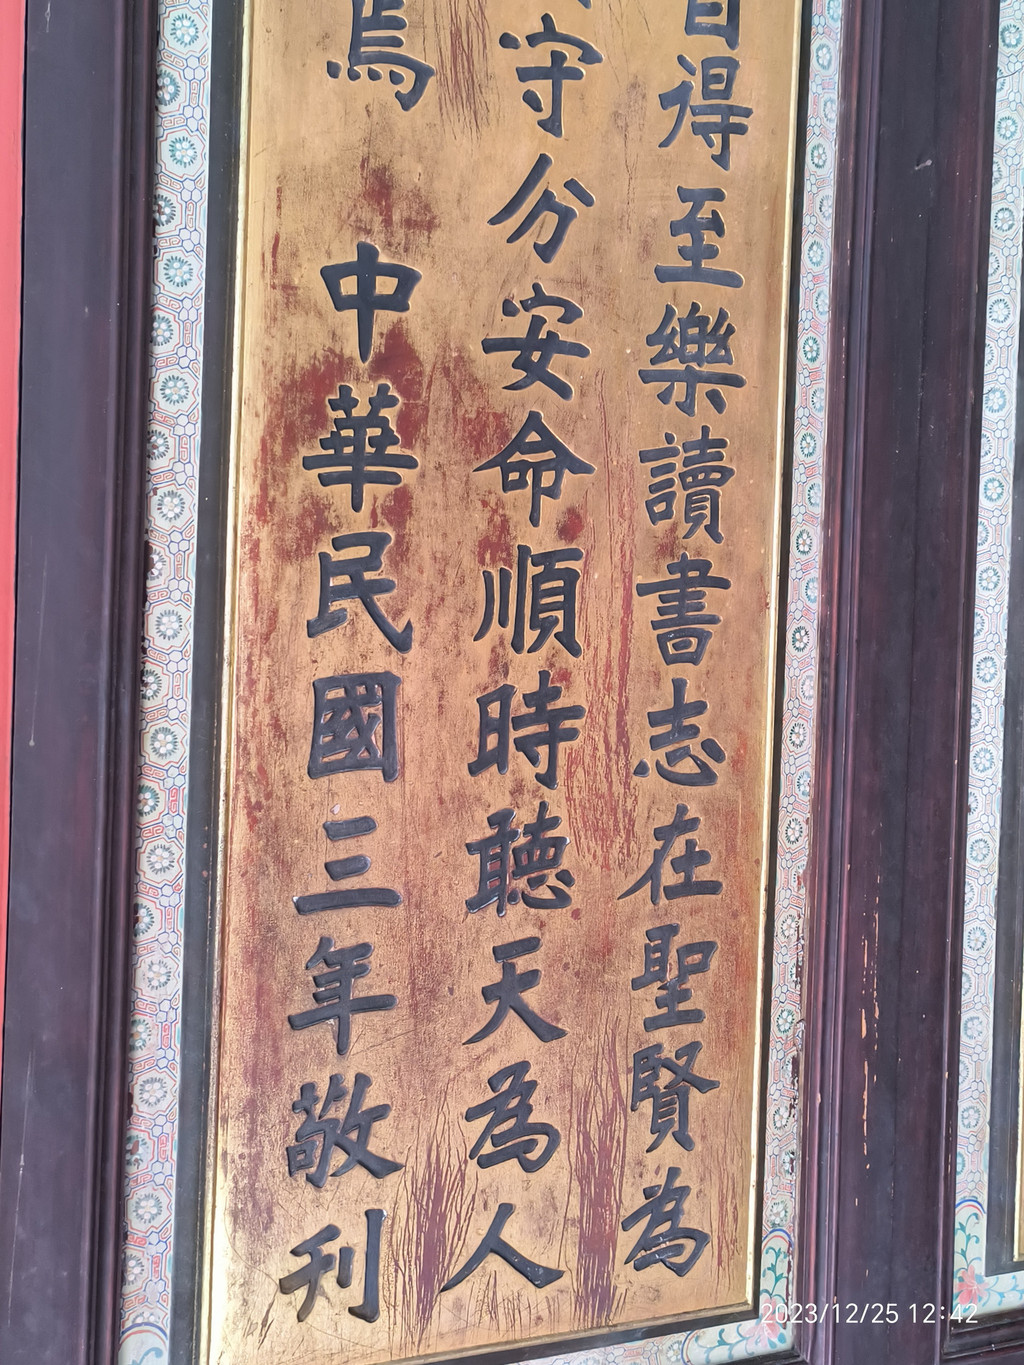 自得至樂讀書志在聖賢為
守分安命順時聽天為人
焉 中華民國三年敬刊
2023/12/25 12:42